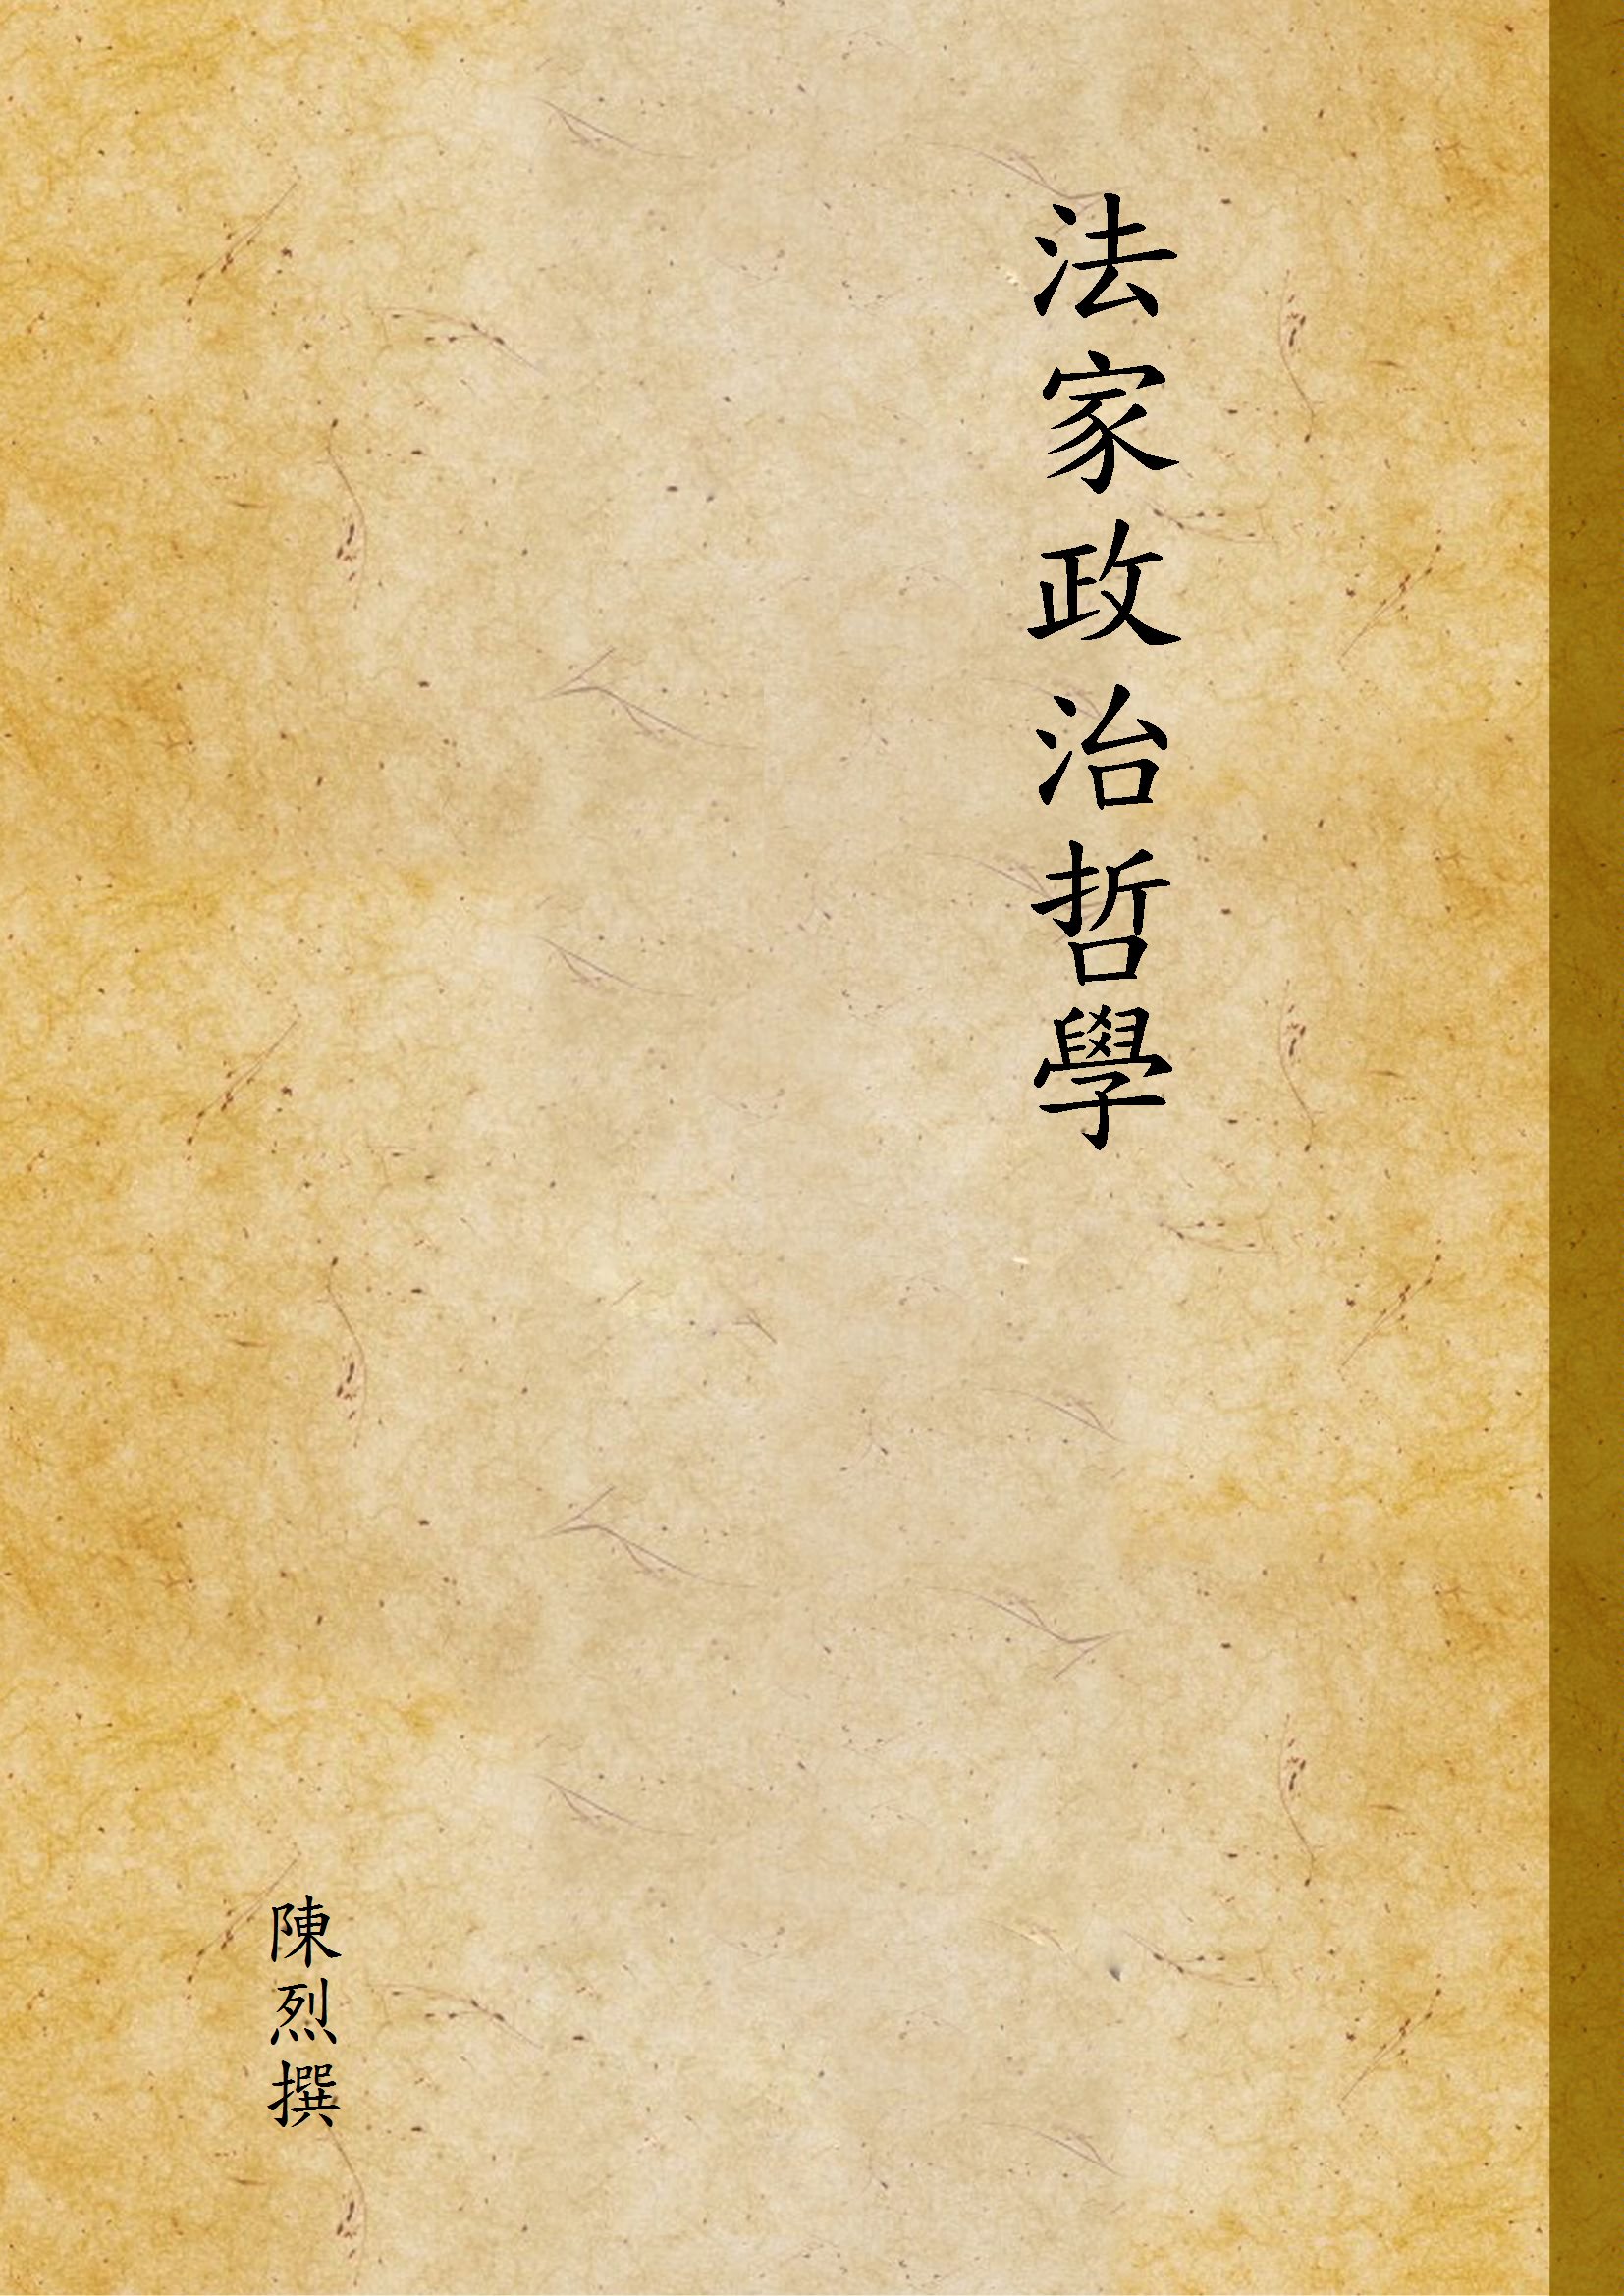 法家政治哲學
陳烈撰